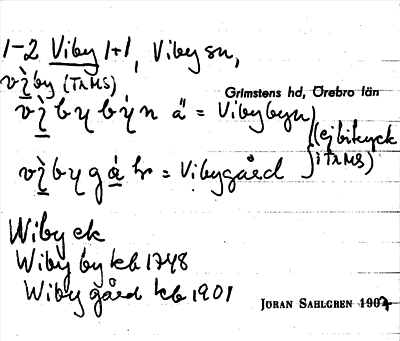 1-2 Viby 1+1, Viby sn,
vìby (TrMS)
Grimstens hd, Örebro län
vìbybyn ä = Vibybyn
(ej bitryck
i TrMS)
vìbygå = Vibygård
Wiby ek
Wiby by kb 1748
Wiby gård kb 1901
JÖRAN SAHLGREN 190